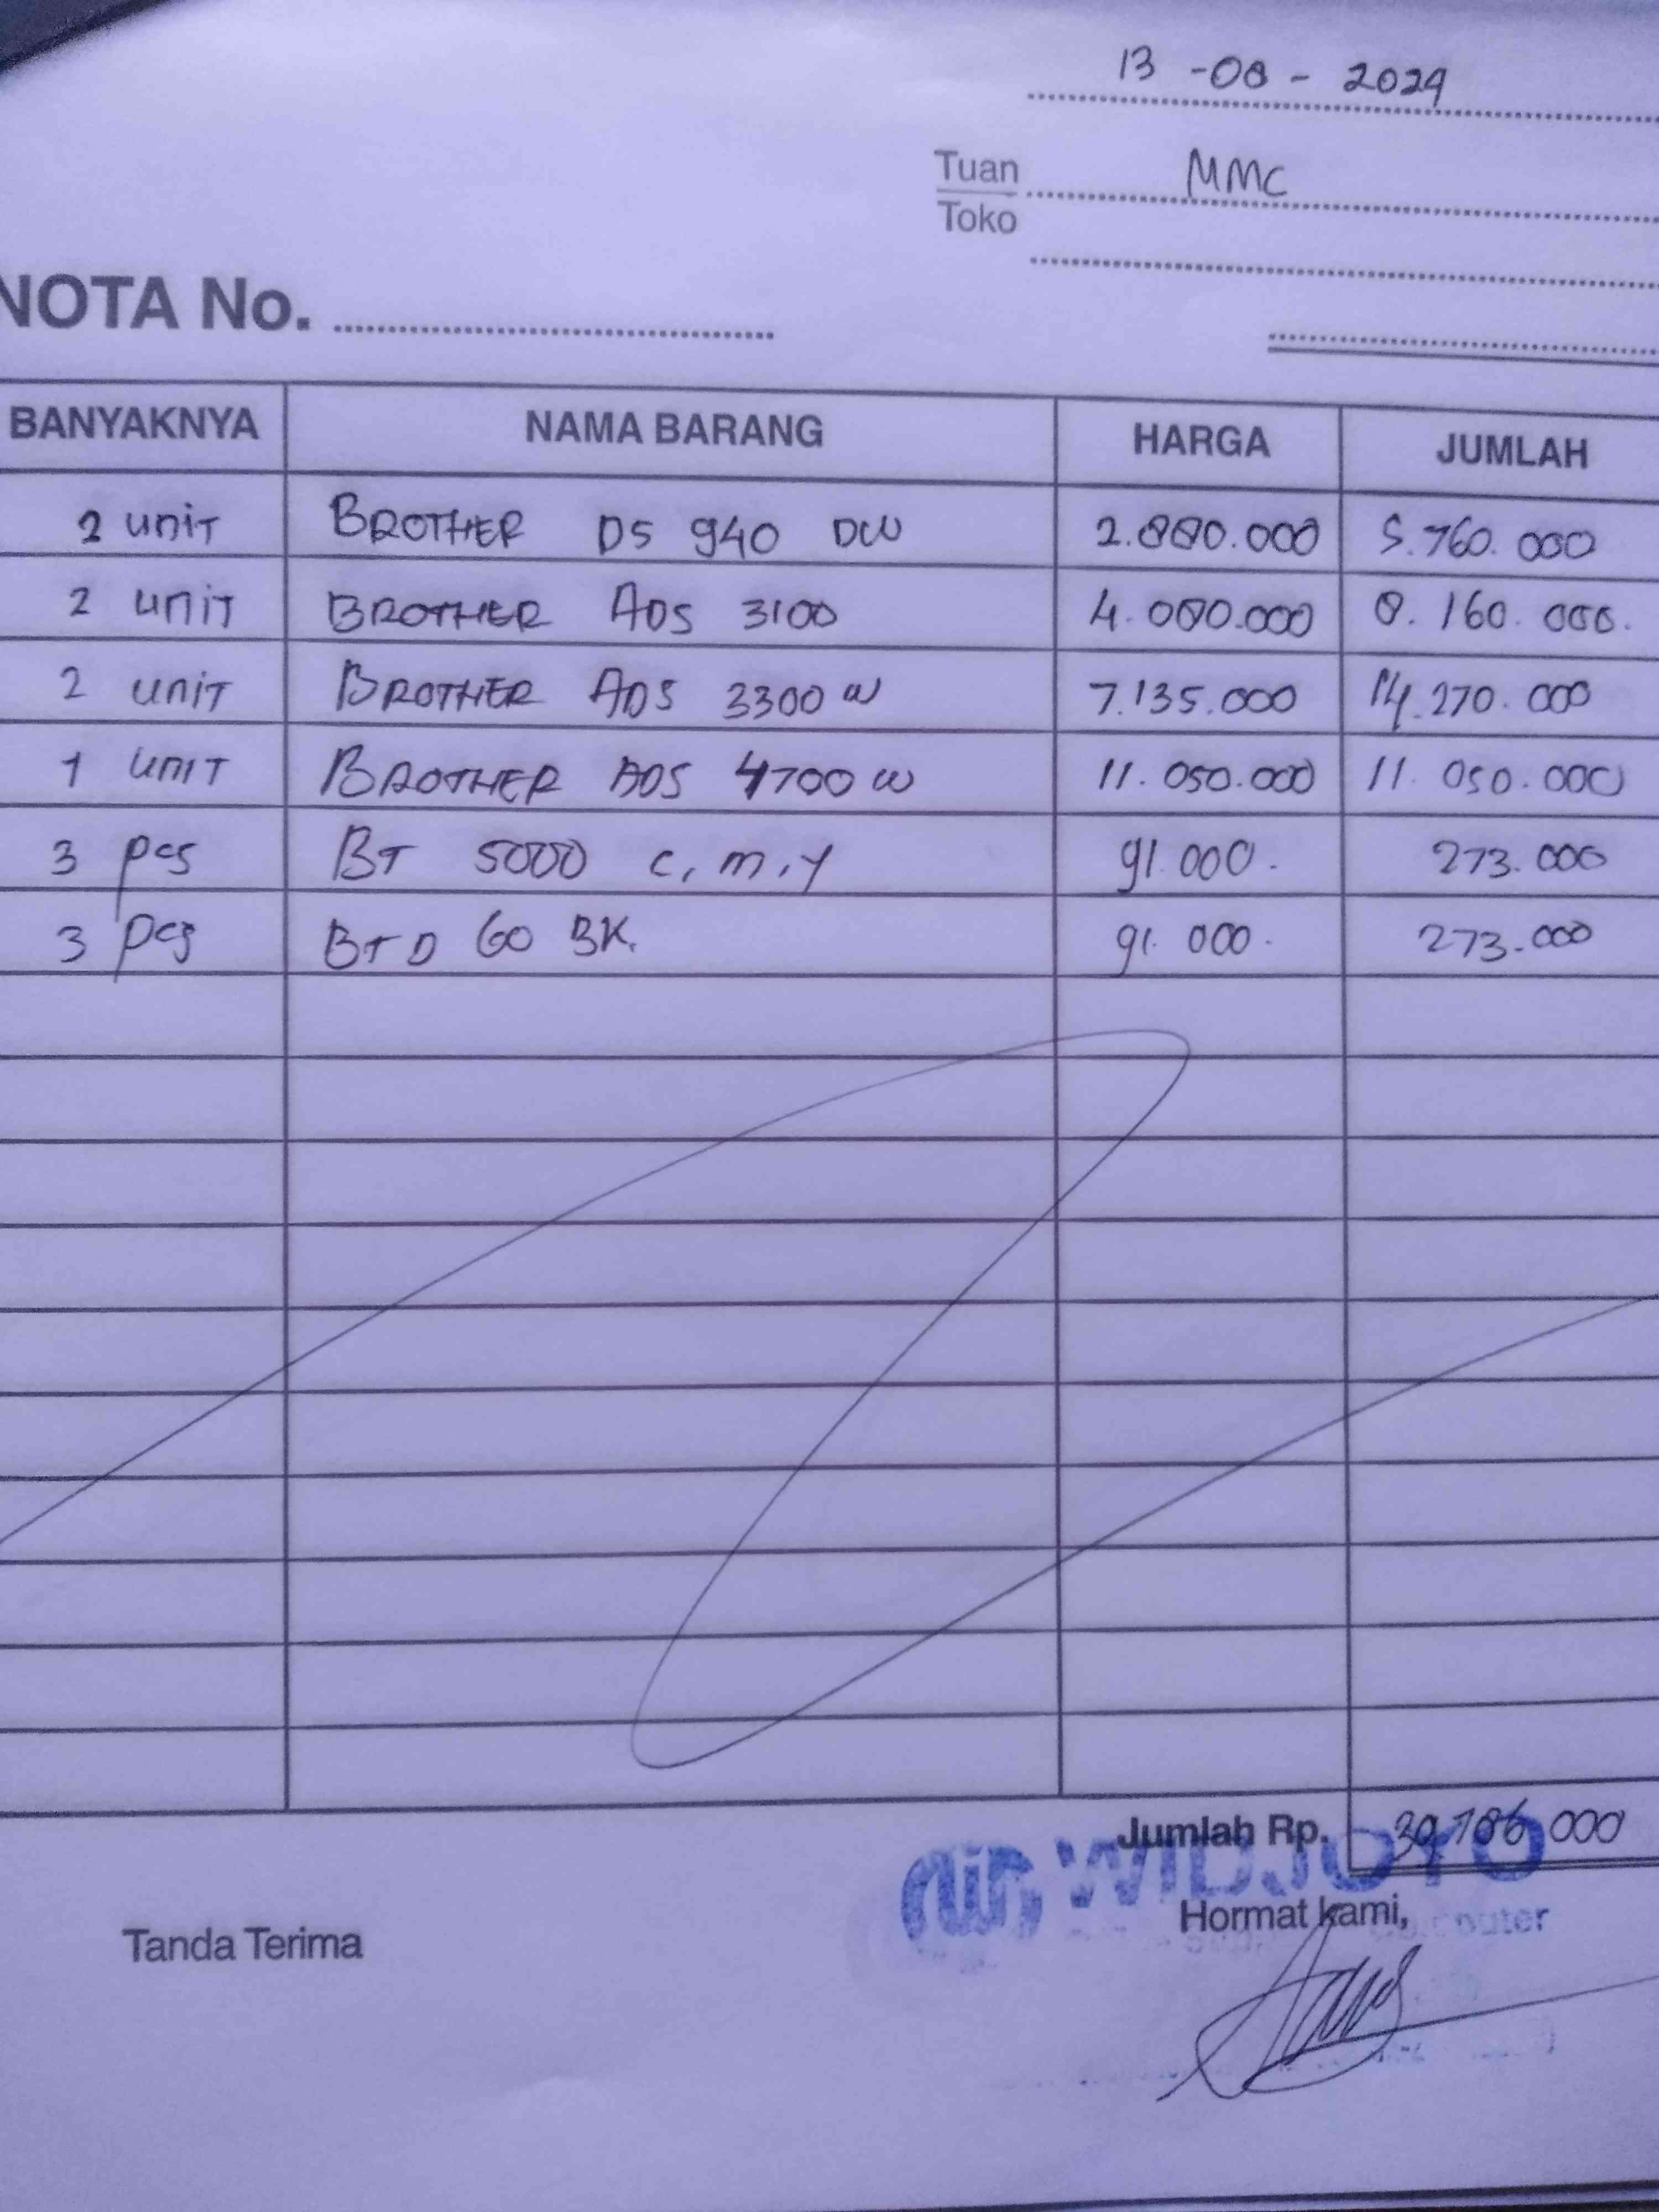 13 -08 - 2024
Tuan MMC
Toko
NOTA No.
BANYAKNYA NAMA BARANG HARGA JUMLAH
2 unit BROTHER DS 940 DW 2.880.000 5.760.000
2 unit BROTHER ADS 3100 4.080.000 8.160.000.
2 unit BROTHER ADS 3300 W 7.135.000 14.270.000
1 unit BROTHER ADS 4700 W 11.050.000 11.050.000
3 pcs BT 5000 C, M, Y 91.000. 273.000
3 pcs BTD 60 BK. 91.000. 273.000
Jumlah Rp. 39.786.000
WIDJOYO
Tanda Terima Hormat kami,